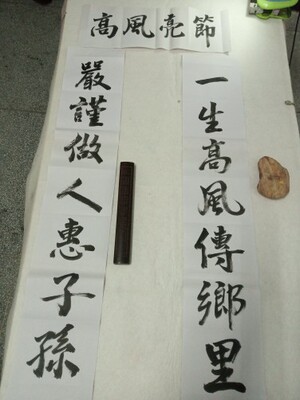 高風亮節
一生高風傳鄉里
嚴謹做人惠子孫